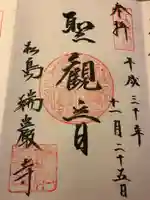 奉拝
平成三十年
十一月二十五日
聖観音
松島 瑞巌寺